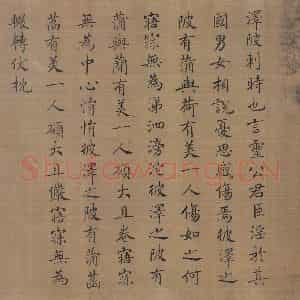 澤陂刺時也言靈公君臣淫於其
國男女相說憂思感傷焉彼澤之
陂有蒲與荷有美一人傷如之何
寤寐無為涕泗滂沱彼澤之陂有
蒲與蕑有美一人碩大且卷寤寐
無為中心悁悁彼澤之陂有蒲菡
萏有美一人碩大且儼寤寐無為
輾轉伏枕